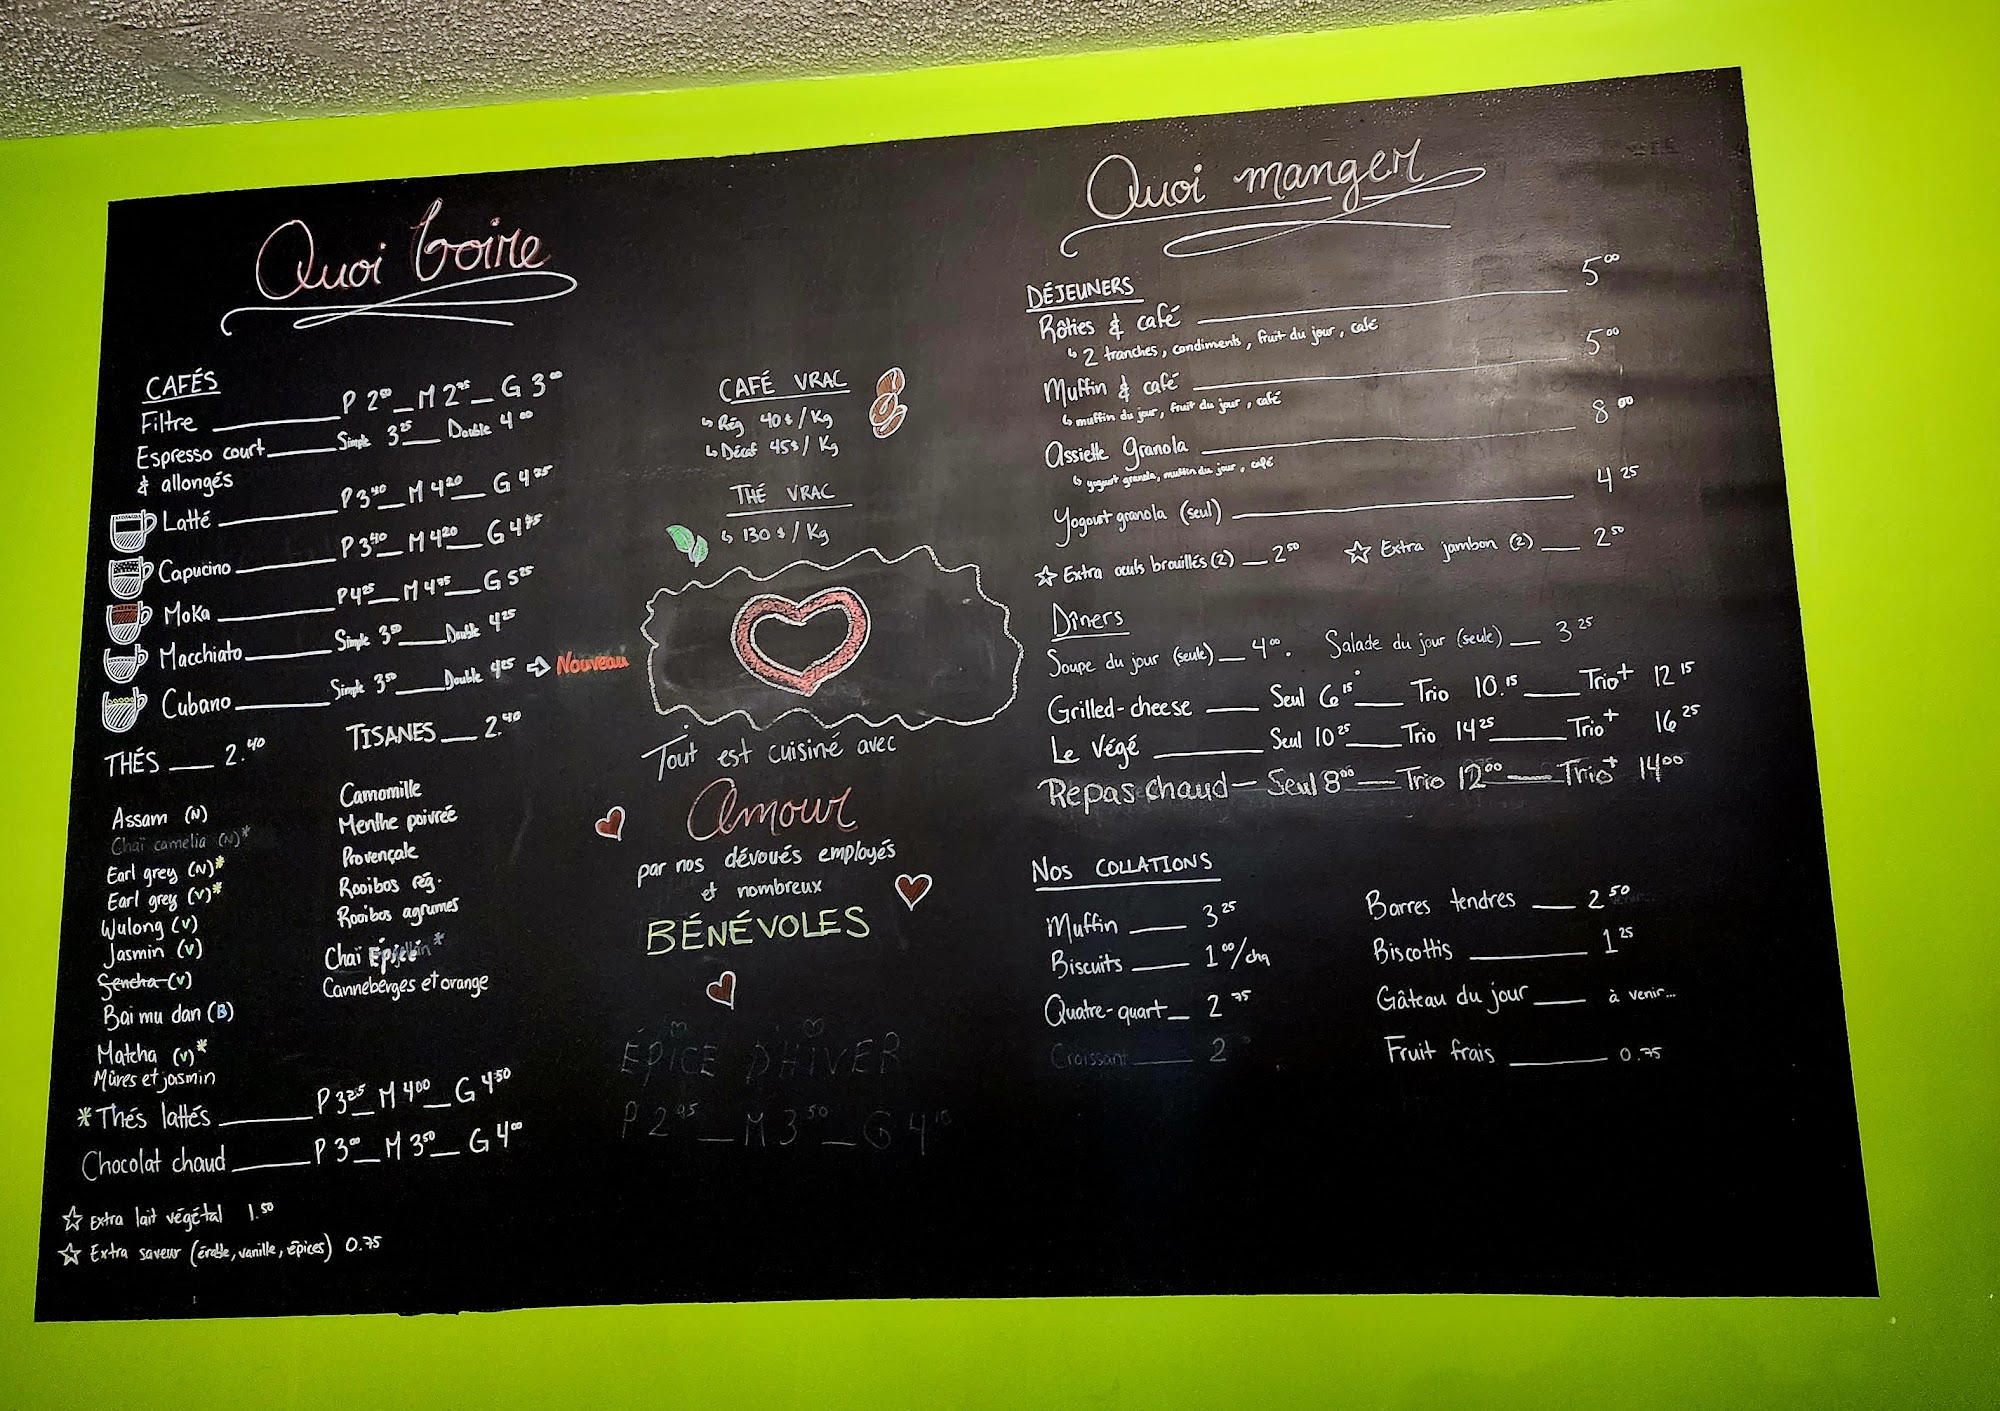 Quoi boire
CAFÉS
Filtre P 2.00 M 2.75 G 3.00
Espresso court Simple 3.25 Double 4.00
& allongés
Latté P 3.40 M 4.20 G 4.75
Capucino P 3.40 M 4.20 G 4.75
Moka P 4.25 M 4.75 G 5.25
Macchiato Simple 3.50 Double 4.25
Cubano Simple 3.50 Double 4.25 ⇨ Nouveau
THÉS 2.40
Assam (N)
Chaï camelia (N)*
Earl grey (N)*
Earl grey (V)*
Wulong (V)
Jasmin (V)
Sencha (V)
Bai mu dan (B)
Matcha (V)*
Mûres et jasmin
TISANES 2.40
Camomille
Menthe poivrée
Provençale
Rooibos rég.
Rooibos agrumes
Chaï Épicé *
Canneberges et orange
*Thés lattés P 3.25 M 4.00 G 4.50
Chocolat chaud P 3.00 M 3.50 G 4.00
☆ Extra lait végétal 1.50
☆ Extra saveur (érable, vanille, épices) 0.75
CAFÉ VRAC
↳ Rég 40$/Kg
↳ Décaf 45$/Kg
THÉ VRAC
↳ 130$/Kg
Tout est cuisiné avec
Amour
par nos dévoués employés
et nombreux
BÉNÉVOLES
ÉPICE D'HIVER
P 2.95 M 3.50 G 4
Quoi manger
DÉJEUNERS
Rôties & café 5.00
↳ 2 tranches, condiments, fruit du jour, café
Muffin & café 5.00
↳ muffin du jour, fruit du jour, café
Assiette Granola 8.00
↳ yogourt granola, muffin du jour, café
Yogourt granola (seul) 4.25
☆ Extra oeufs brouillés (2) 2.50 ☆ Extra jambon (2) 2.50
Dîners
Soupe du jour (seule) 4.00. Salade du jour (seule) 3.25
Grilled-cheese Seul 6.15 Trio 10.15 Trio+ 12.15
Le Végé Seul 10.25 Trio 14.25 Trio+ 16.25
Repas chaud Seul 8.00 Trio 12.00 Trio+ 14.00
Nos COLLATIONS
Muffin 3.25
Biscuits 1.00/chq
Quatre-quart 2.75
Croissant 2
Barres tendres 2.50
Biscottis 1.25
Gâteau du jour à venir...
Fruit frais 0.75